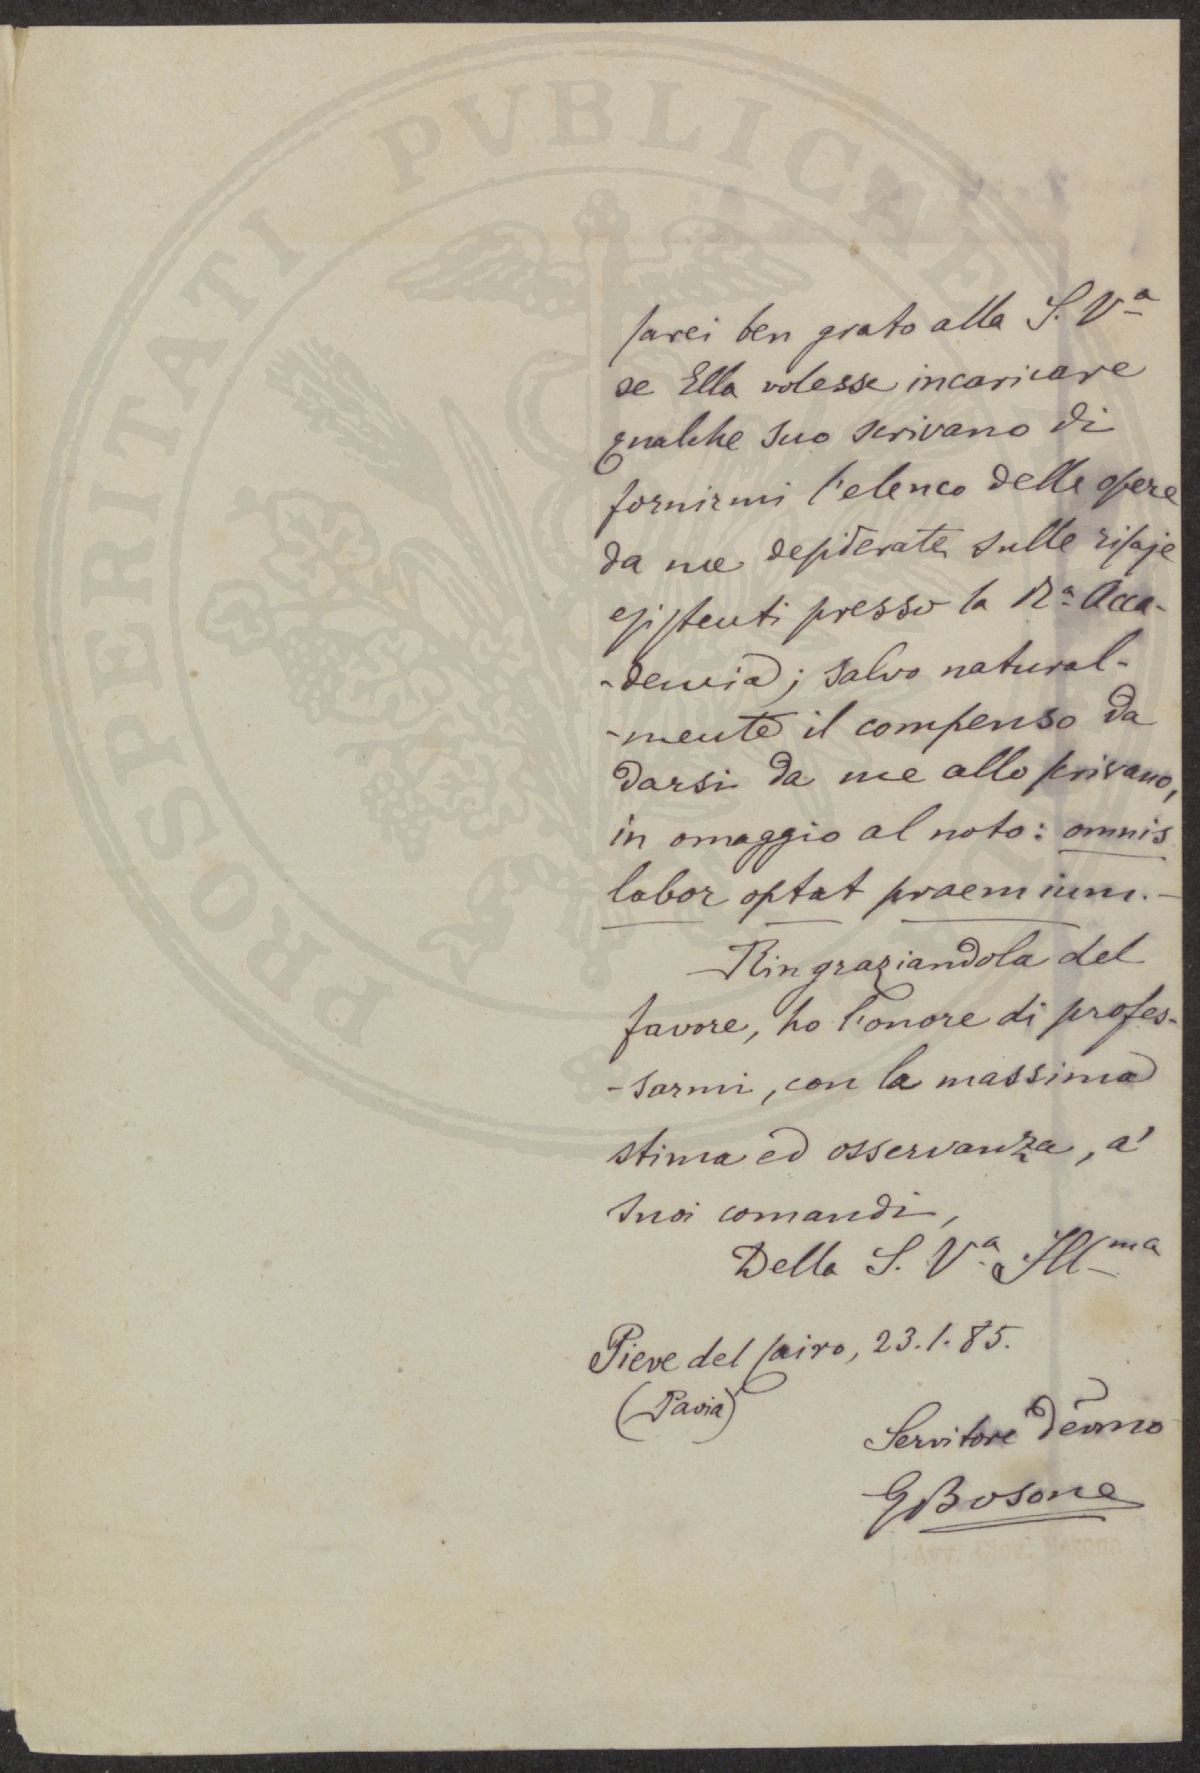 sarei ben grato alla S. Vª
se Ella volesse incaricare
qualche suo scrivano di
fornirmi l'elenco delle opere
da me desiderate sulle risaje
esistenti presso la Rª Acca-
-demia; salvo natural-
-mente il compenso da
darsi da me allo scrivano,
in omaggio al noto: omnis
labor optat praemium.-
Ringraziandola del
favore, ho l'onore di profes-
-sarmi, con la massima
stima ed osservanza, a'
suoi comandi,
Della S. Vª Illma
Pieve del Cairo, 23.1.85.
(Pavia)
Servitore Devmo
GBosone
Avv. Giov. Bosone
PROSPERITATI PVBLICAE